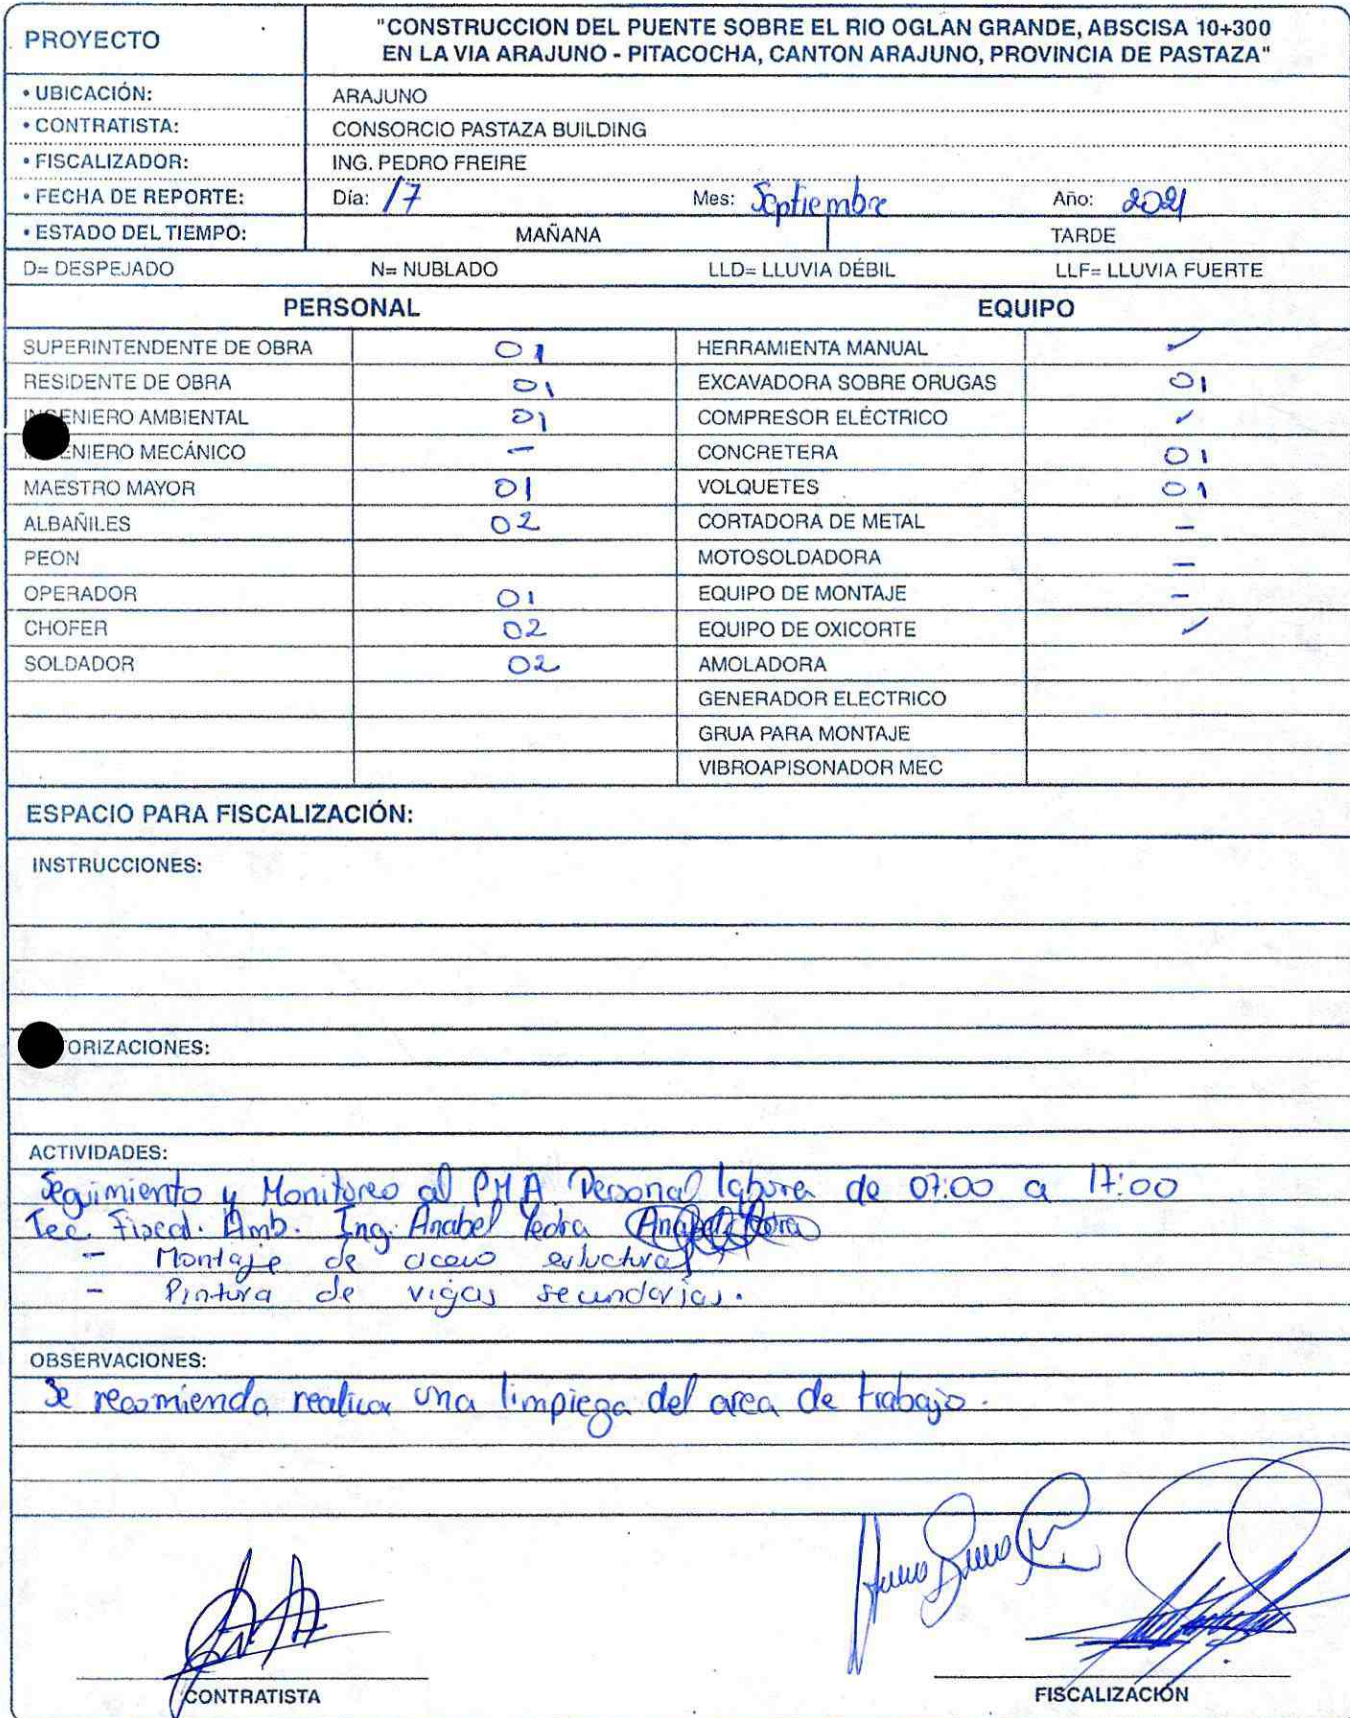 PROYECTO
"CONSTRUCCION DEL PUENTE SOBRE EL RIO OGLAN GRANDE, ABSCISA 10+300
EN LA VIA ARAJUNO - PITACOCHA, CANTON ARAJUNO, PROVINCIA DE PASTAZA"
• UBICACIÓN: ARAJUNO
• CONTRATISTA: CONSORCIO PASTAZA BUILDING
• FISCALIZADOR: ING. PEDRO FREIRE
• FECHA DE REPORTE: Día: 17 Mes: Septiembre Año: 2021
• ESTADO DEL TIEMPO: MAÑANA TARDE
D= DESPEJADO N= NUBLADO LLD= LLUVIA DÉBIL LLF= LLUVIA FUERTE
PERSONAL EQUIPO
SUPERINTENDENTE DE OBRA 01 HERRAMIENTA MANUAL ✓
RESIDENTE DE OBRA 01 EXCAVADORA SOBRE ORUGAS 01
INGENIERO AMBIENTAL 01 COMPRESOR ELÉCTRICO ✓
ENIERO MECÁNICO – CONCRETERA 01
MAESTRO MAYOR 01 VOLQUETES 01
ALBAÑILES 02 CORTADORA DE METAL –
PEON MOTOSOLDADORA –
OPERADOR 01 EQUIPO DE MONTAJE –
CHOFER 02 EQUIPO DE OXICORTE ✓
SOLDADOR 02 AMOLADORA
GENERADOR ELECTRICO
GRUA PARA MONTAJE
VIBROAPISONADOR MEC
ESPACIO PARA FISCALIZACIÓN:
INSTRUCCIONES:
ORIZACIONES:
ACTIVIDADES:
Seguimiento y Monitoreo al PMA Personal labora de 07:00 a 17:00
Tec. Fiscal. Amb. Ing. Anabel
- Montaje de acero estructural
- Pintura de vigas secundarias.
OBSERVACIONES:
Se recomienda realizar una limpieza del area de trabajo.
CONTRATISTA FISCALIZACIÓN